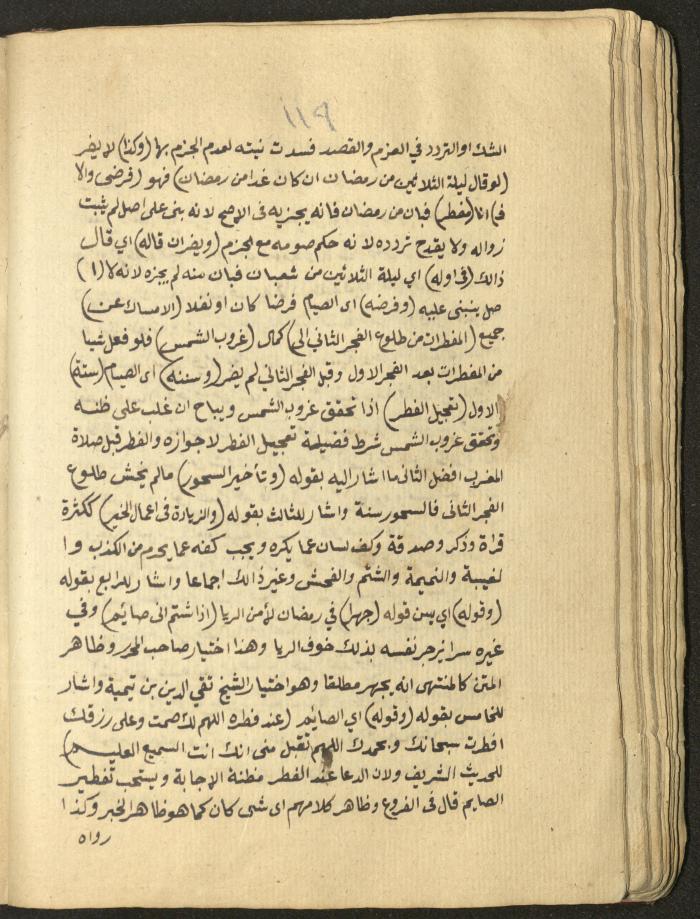 ١١٩
الشك او التردد في العزم والقصد فسدت نيته لعدم الجزم بها (وكذا) لا يضر
(لو قال ليلة الثلاثين من رمضان ان كان غدا من رمضان) فهو (فرضي والا
فـ) انا (مفطر) فبان من رمضان فانه يجزيه في الاصح لانه بنى على اصل لم يثبت
زواله ولا يقدح تردده لانه حكم صومه مع الجزم (ويضر ان قاله) اي قال
ذالك (في اوله) اي ليلة الثلاثين من شعبان فبان منه لم يجزه لانه لا (ا)
صل ينبني عليه (وفرضه) اى الصيام فرضا كان او نفلا (الامساك عن)
جميع (المفطرات من طلوع الفجر الثاني الى) كمال (غروب الشمس) فلو فعل شيا
من المفطرات بعد الفجر الاول وقبل الفجر الثاني لم يضر (وسننه) اى الصيام (ستة)
الاول (تعجيل الفطر) اذا تحقق غروب الشمس ويباح ان غلب على ظنه
وتحقق غروب الشمس شرط فضيلة تعجيل الفطر لا جوازه والفطر قبل صلاة
المغرب افضل الثانى ما اشار اليه بقوله (وتأخير السحور) مالم يخش طلوع
الفجر الثانى فالسحور سنة واشار للثالث بقوله (والزيادة فى اعمال الخير) ككثرة
قراة وذكر وصدقة وكف لسان عما يكره ويجب كفه عما يحرم من الكذب وا
لغيبة والنميمة والشتم والفحش وغير ذالك اجماعا واشار للرابع بقوله
(وقوله) اي يسن قوله (جهرا) في رمضان لأمن الريا (اذا شتم انى صايم) وفي
غيره سرا يزجر نفسه بذلك خوف الريا وهذا اختيار صاحب المحرر وظاهر
المتن كالمنتهى انه يجهر مطلقا وهو اختيار الشيخ تقي الدين بن تيمية واشار
للخامس بقوله (وقوله) اي الصايم (عند فطره اللهم لك صمت وعلى رزقك
افطرت سبحانك وبحمدك اللهم تقبل منى انك انت السميع العليم)
للحديث الشريف ولان الدعا عند الفطر مظنة الإجابة ويستحب تفطير
الصايم قال فى الفروع وظاهر كلامهم اى شى كان كما هو ظاهر الخبر وكذا
رواه